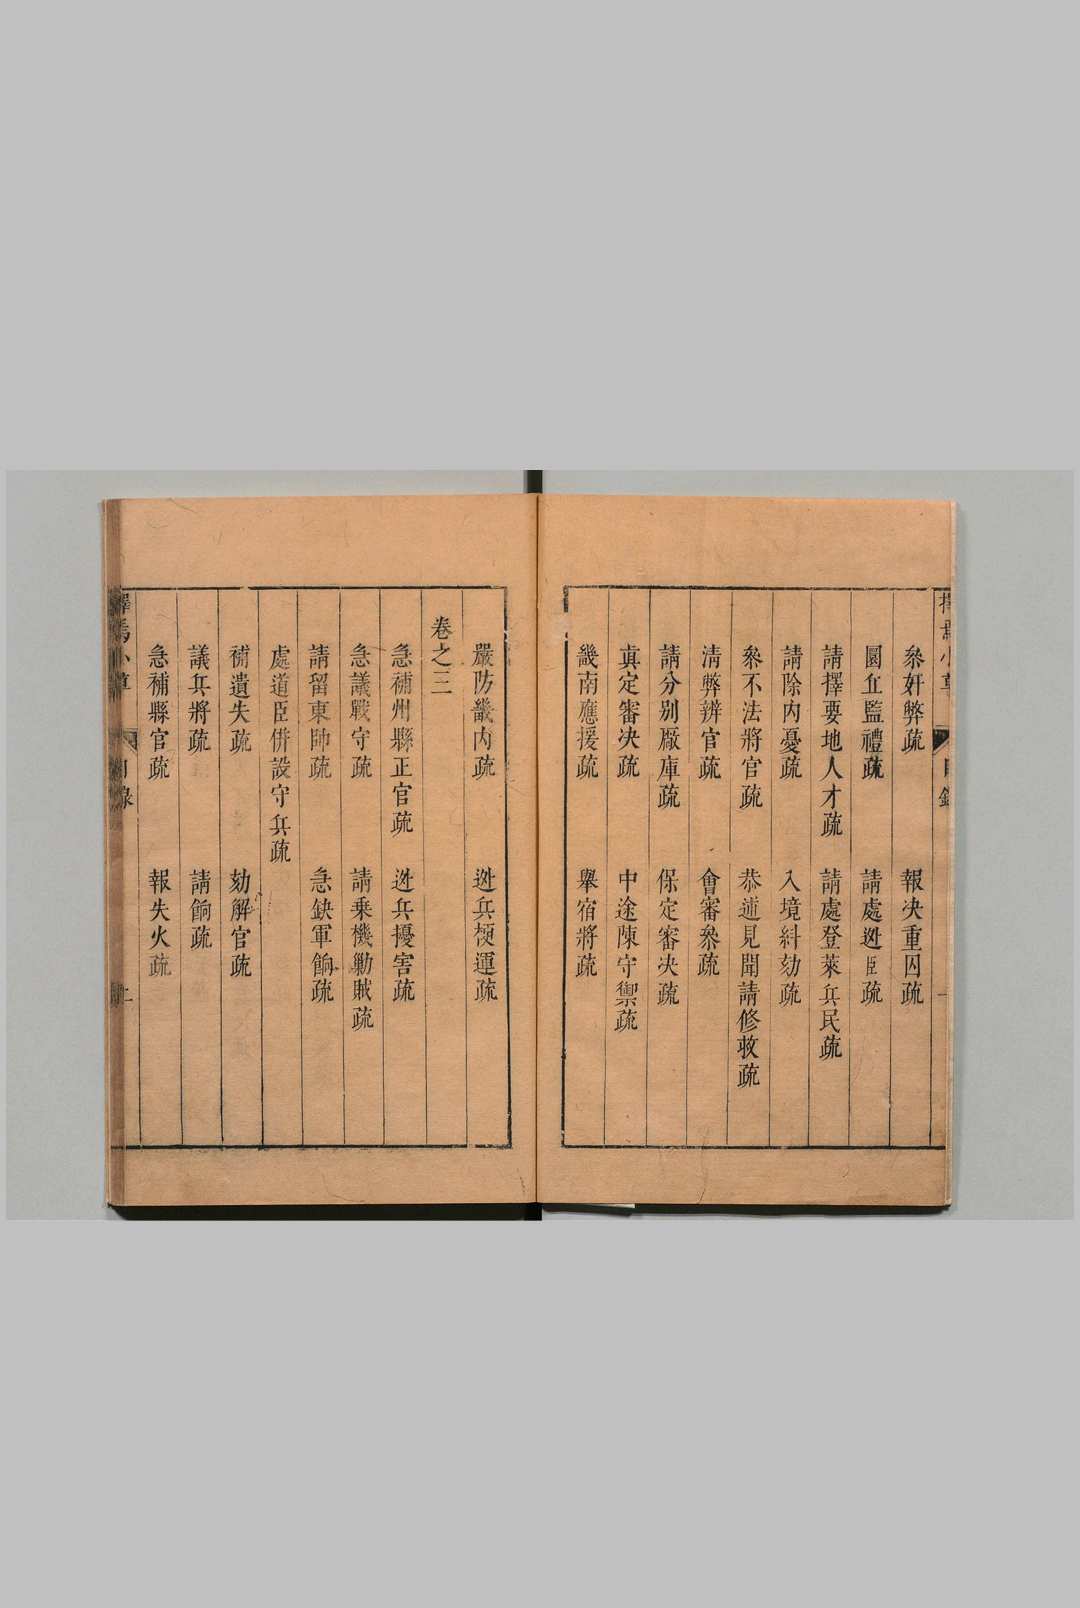 參奸弊疏　報決重囚疏
圜丘監禮疏　請處迯臣疏
請擇要地人才疏　請處登萊兵民疏
請除内憂疏　入境糾劾疏
參不法將官疏　恭述見聞請修救疏
清弊辨官疏　會審參疏
請分别厰庫疏　保定審决疏
真定審决疏　中途陳守禦疏
畿南應援疏　舉宿將疏
嚴防畿内疏　迯兵梗運疏
卷之三
急補州縣正官疏　迯兵擾害疏
急議戰守疏　請乗機勦賊疏
請留東帥疏　急缺軍餉疏
處道臣併設守兵疏
補遺失疏　劾解官疏
議兵將疏　請餉疏
急補縣官疏　報失火疏